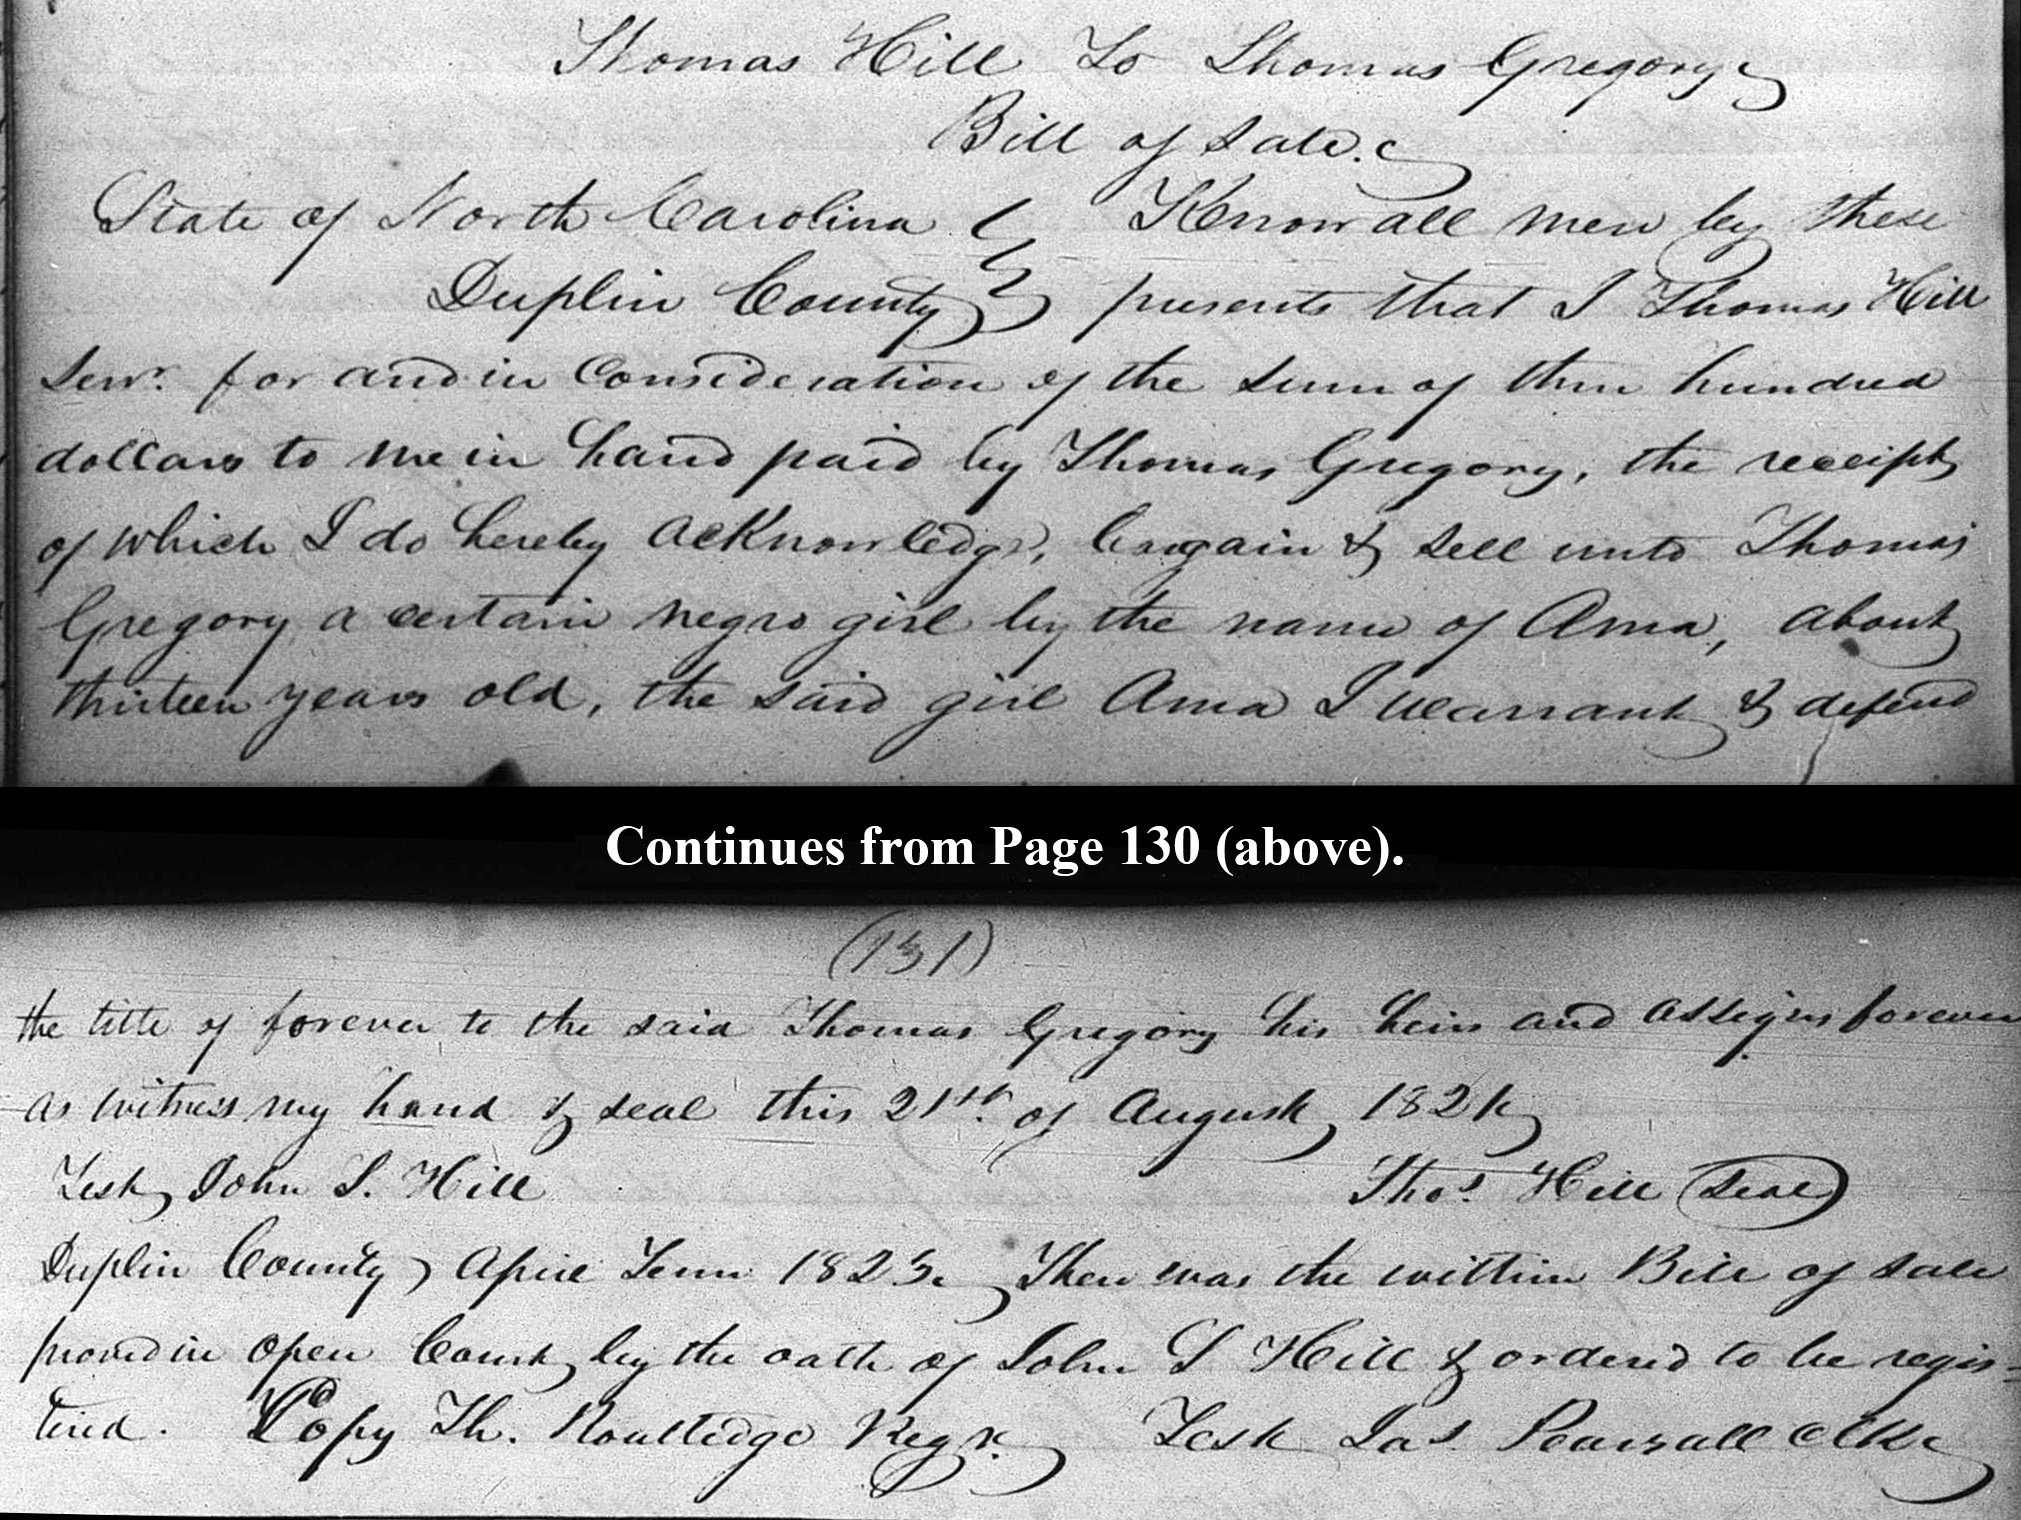 Thomas Hill To Thomas Gregory
Bill of Sale.
State of North Carolina Know all men by these
Duplin County presents that I Thomas Hill
Senr. for and in Consideration of the Sum of three hundred
dollars to me in hand paid by Thomas Gregory, the receipt
of which I do hereby acknowledge, bargain & sell unto Thomas
Gregory a certain negro girl by the name of Ama, about
thirteen years old, the said girl Ama I warrant & defend
Continues from Page 130 (above).
(131)
the title of forever to the said Thomas Gregory his heirs and assigns forever
as witness my hand & seal this 21st. of August
Test John S. Hill Thos. Hill (Seal)
Duplin County April Term 1823. Then was the within Bill of sale
proved in open Court by the oath of John S Hill & ordered to be regis=
tered. Copy Th. Routledge Regr. Test Jas. Pearsall Clk